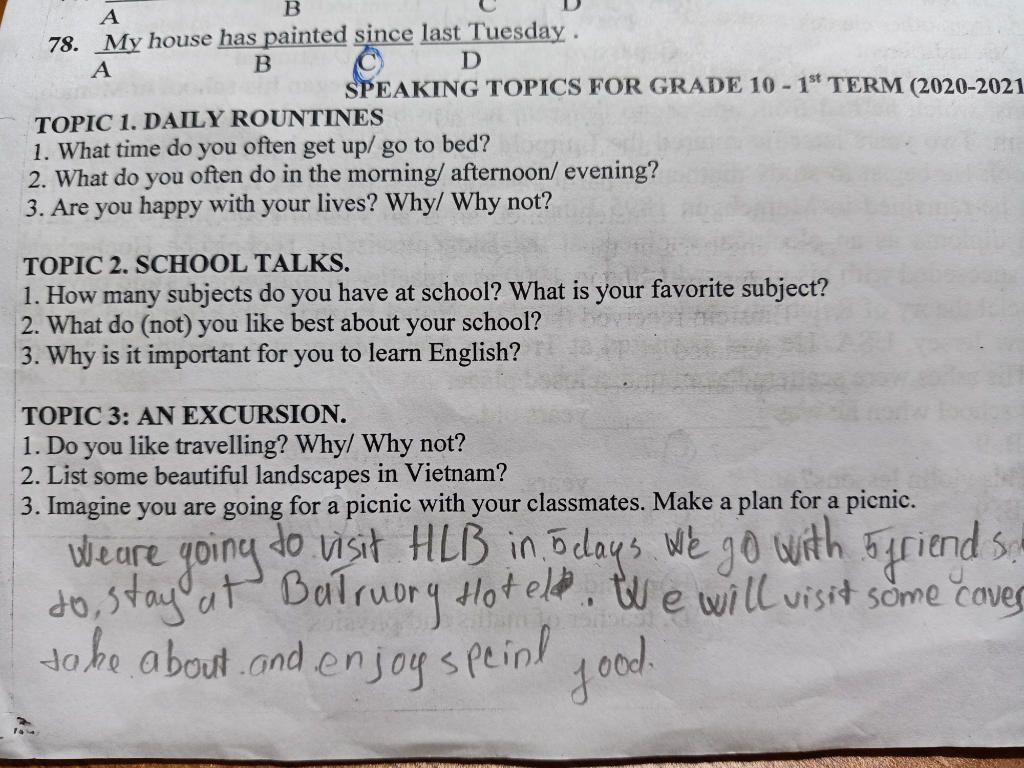 A B C D
78. My house has painted since last Tuesday .
A B C D
SPEAKING TOPICS FOR GRADE 10 - 1st TERM (2020-2021
TOPIC 1. DAILY ROUNTINES
1. What time do you often get up/ go to bed?
2. What do you often do in the morning/ afternoon/ evening?
3. Are you happy with your lives? Why/ Why not?
TOPIC 2. SCHOOL TALKS.
1. How many subjects do you have at school? What is your favorite subject?
2. What do (not) you like best about your school?
3. Why is it important for you to learn English?
TOPIC 3: AN EXCURSION.
1. Do you like travelling? Why/ Why not?
2. List some beautiful landscapes in Vietnam?
3. Imagine you are going for a picnic with your classmates. Make a plan for a picnic.
We are going to visit HLB in 5 days. We go with 5 friends
to, stay at Hotel. We will visit some caves
take about and enjoy good.